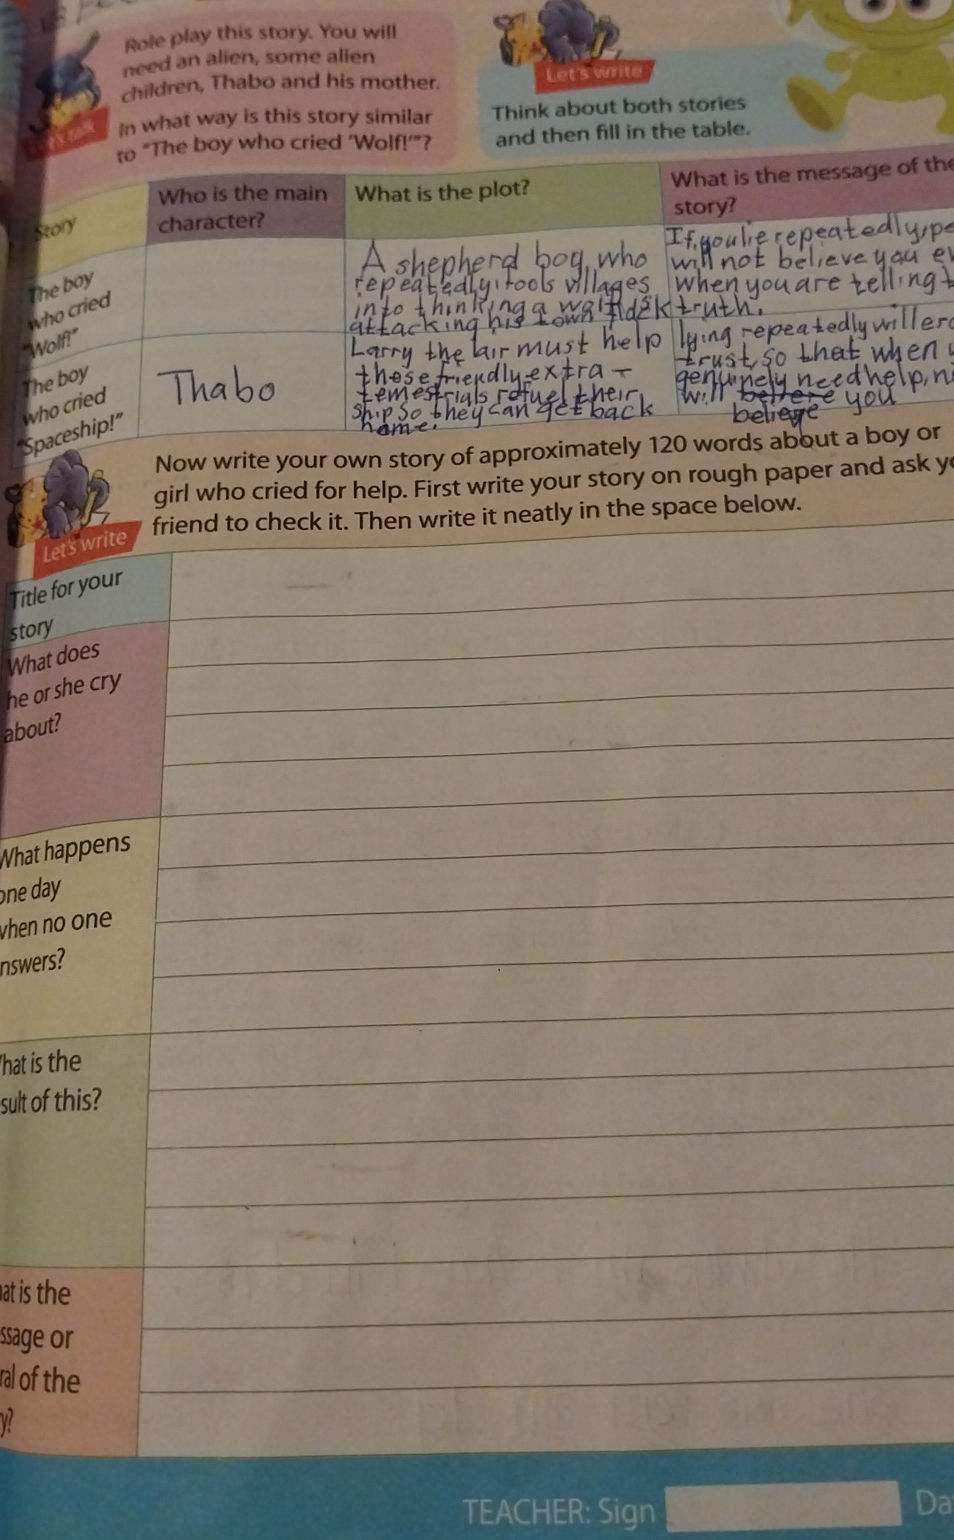 Role play this story. You will
need an alien, some alien
children, Thabo and his mother.
In what way is this story similar
to "The boy who cried 'Wolf!'"?
Let's talk
Let's write
Think about both stories
and then fill in the table.
Story
Who is the main
character?
What is the plot?
What is the message of the
story?
The boy
who cried
"Wolf!"
A shepherd boy who
repeatedly tools villages
into thinking a wolf is
attacking his town flock
If you lie repeatedly, pe
will not believe you ev
when you are telling t
truth.
The boy
who cried
"Spaceship!"
Thabo
Larry the liar must help
these friendly extra-
terrestrials refuel their
ship so they can get back
home.
lying repeatedly will ero
trust, so that when y
genuinely need help, n
will you
believe
Let's write
Now write your own story of approximately 120 words about a boy or
girl who cried for help. First write your story on rough paper and ask yo
friend to check it. Then write it neatly in the space below.
Title for your
story
What does
he or she cry
about?
What happens
one day
when no one
nswers?
hat is the
sult of this?
at is the
ssage or
ral of the
y?
TEACHER: Sign
Da